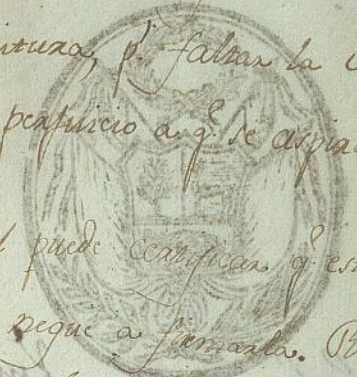 p.r faltar la
perjuicio a q.e se aspira
puede certificar q.e es
negué a firmarla.